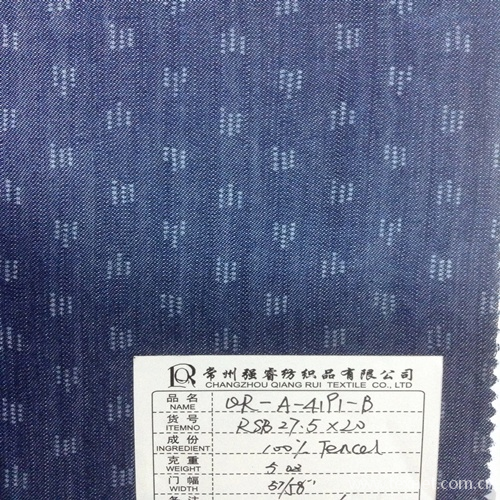 QR 常州强睿纺织品有限公司
CHANGZHOU QIANG RUI TEXTILE CO., LTD
品名 NAME QR-A-41P1-B
货号 ITEMNO RSB 27.5×20
成份 INGREDIENT 100% Tencel
克重 WEIGHT 5 oz
门幅 WIDTH 57/58"